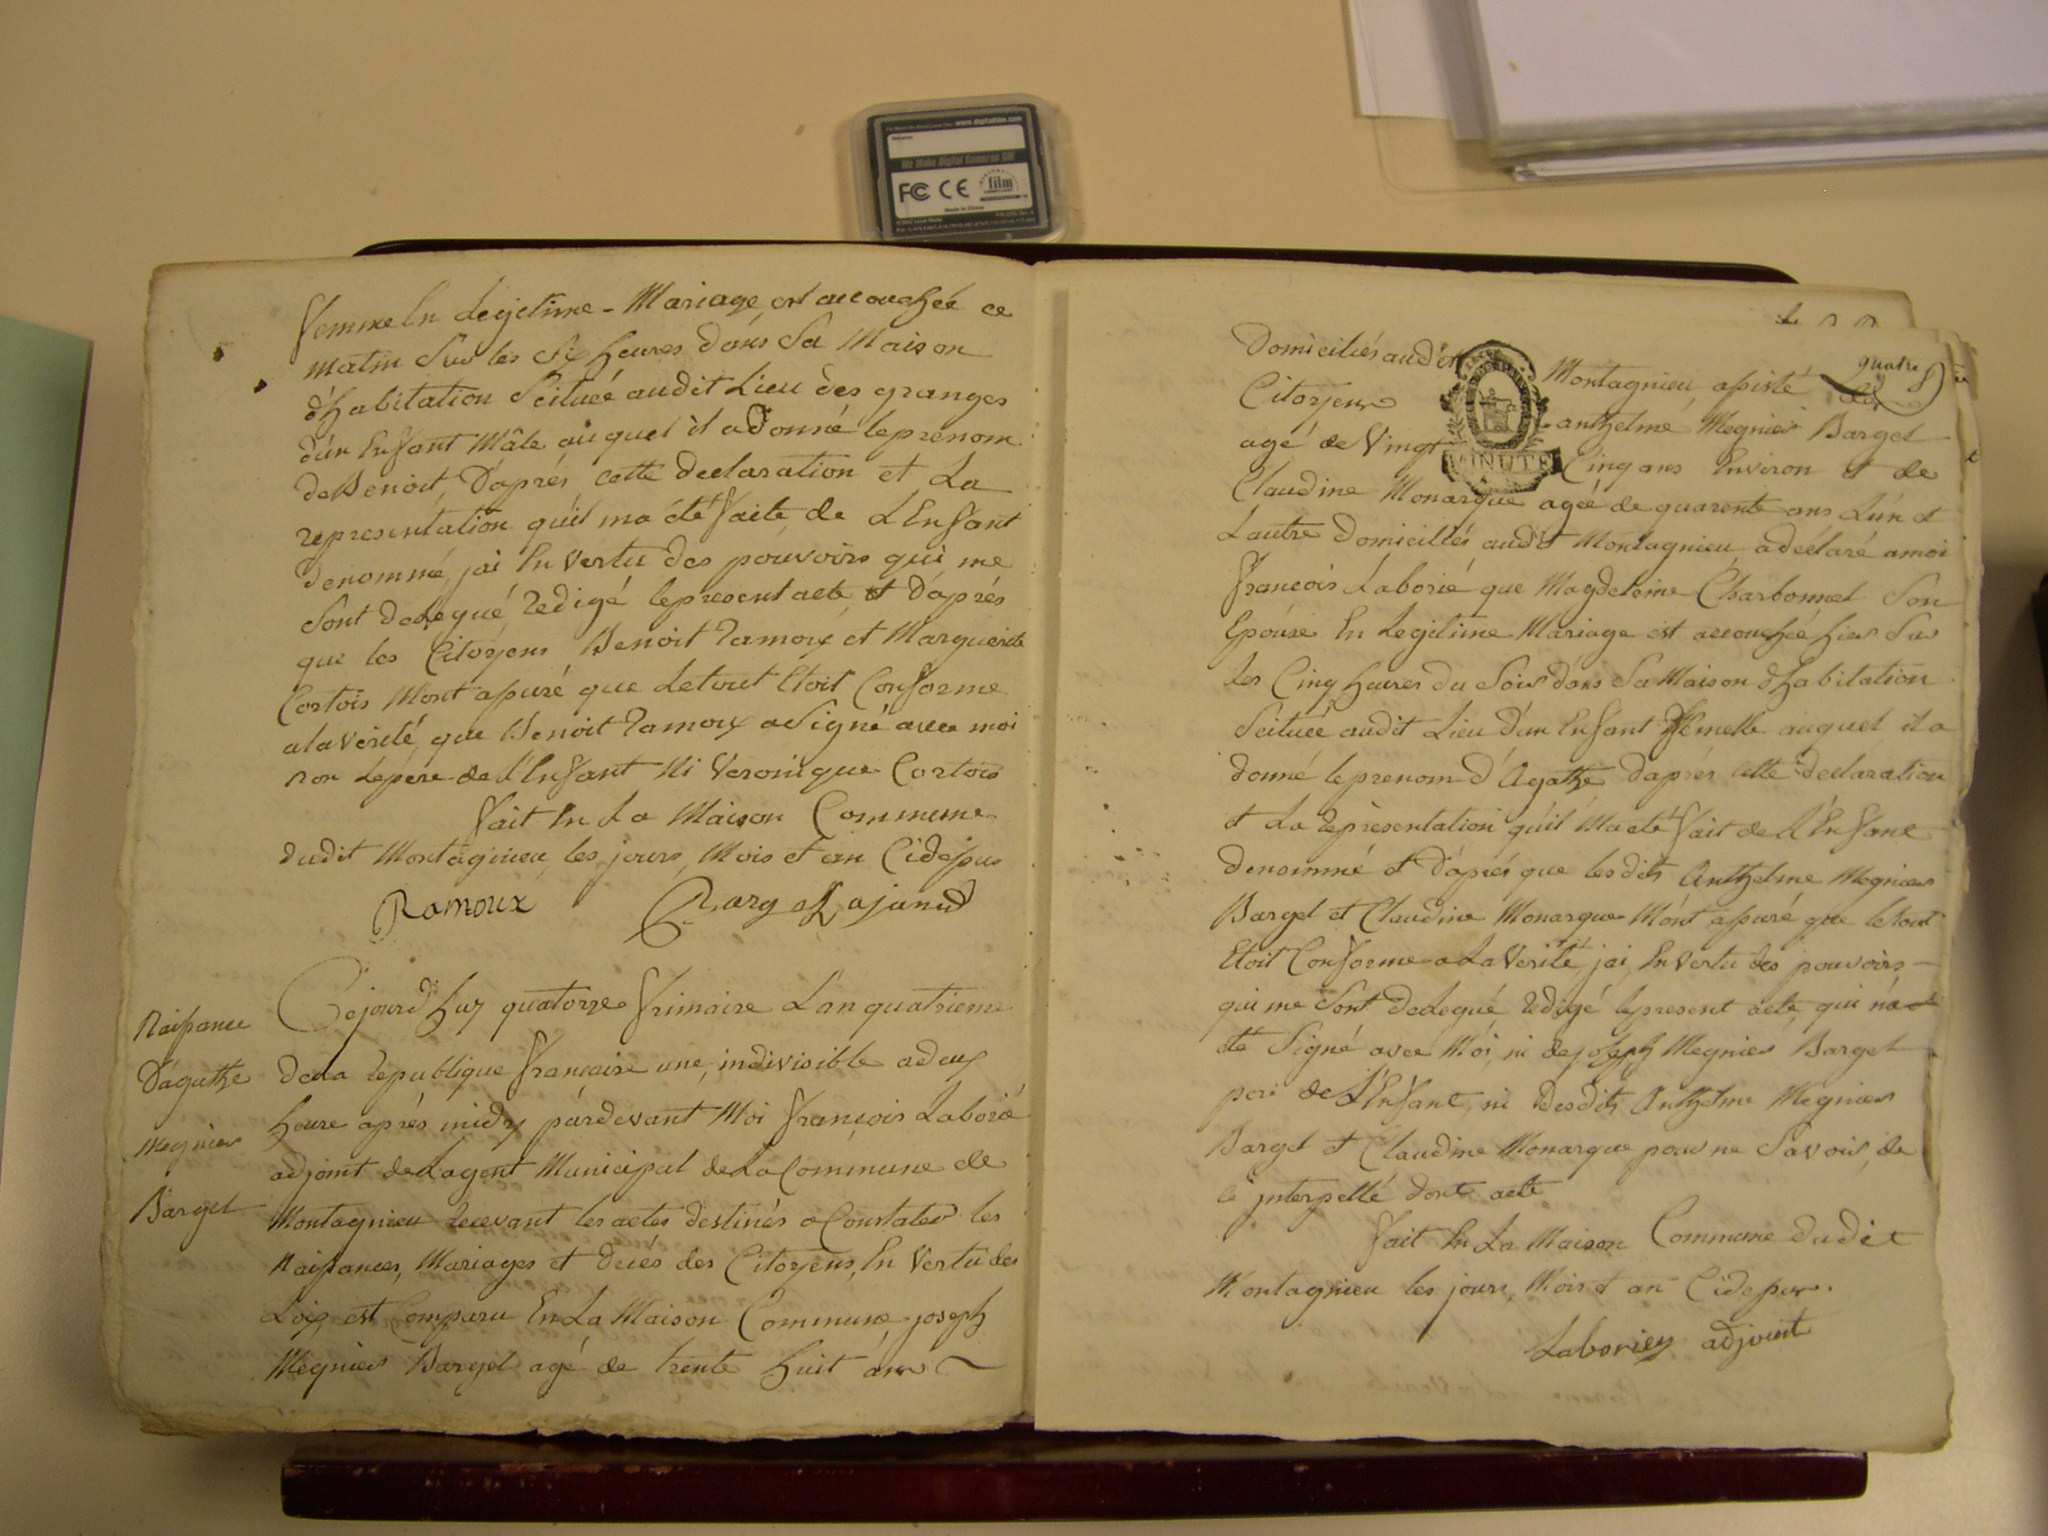 www.digitalfilm.com
We Make Digital Cameras Go!
FC CE
film
Made in China
femme En Legitime - Mariage, est accouchée ce
matin Sur les Six heures dans Sa Maison
d'habitation Scituée audit Lieu des granges
d'un Enfant Mâle auquel il a donné le prenom
de Benoit D'aprés cette declaration et La
representation qu'il ma été faite de L'Enfant
denommé, jai En vertu des pouvoirs qui me
Sont delegué, redigé le present acte, et d'aprés
que les Citoyens Benoit Ramoux et Marguerite
Cortois Mont assuré que Le tout Etoit Conforme
a la verité, que Benoit Ramoux a Signé avec moi
non Le pere de l'Enfant Ni Veronique Cortois
fait En La Maison Commune
dudit Montagnieu, les jours, Mois et an Cidessus
Ramoux
Naissance
D'agathe
Megnier
Barget
Cejourd'huy quatorze frimaire L'an quatrieme
de La republique française une, indivisible a deux
heure aprés midy pardevant Moi françois Laborié
adjoint de Lagent Municipal de La Commune de
Montagnieu recevant les actes destinés a Constater les
Naissances, Mariages et décés des Citoyens, En Vertu des
Loix est Comparu En La Maison Commune joseph
Megnier Barget agé de trente huit ans
quatre
8
Domiciliés audit Montagnieu, assisté des
Citoyens anthelme Megnier Barget
agé de Vingt Cinq ans Environ et de
MINUTE
Claudine Monarque agée de quarente ans L'un et
Lautre Domiciliés audit Montagnieu a déclaré a moi
françois Laborié que Magdeleine Charbonnel Son
Epouse En Legitime Mariage est accouchée hier Sur
les Cinq heures du Soir dans Sa Maison d'habitation
Scituée audit Lieu d'un Enfant femelle auquel il a
donné le prenom d'Agathe D'aprés cette declaration
et La representation qu'il Ma eté fait de L'Enfant
denommé et D'aprés que lesdits Anthelme Megnier
Barget et Claudine Monarque Mont assuré que le tout
Etoit Conforme a La Verité, jai, En vertu des pouvoirs
qui me Sont delegué redigé le present acte, qui na
eté Signé avec Moi, ni de joseph Megnier Barget
pere de L'Enfant, ni desdits Anthelme Megnier
Barget et Claudine Monarque pour ne Savoir, de
ce interpellé dont acte
fait En La Maison Commune dudit
Montagnieu les jours, Mois et an Cidessus.
Laboriey adjoint